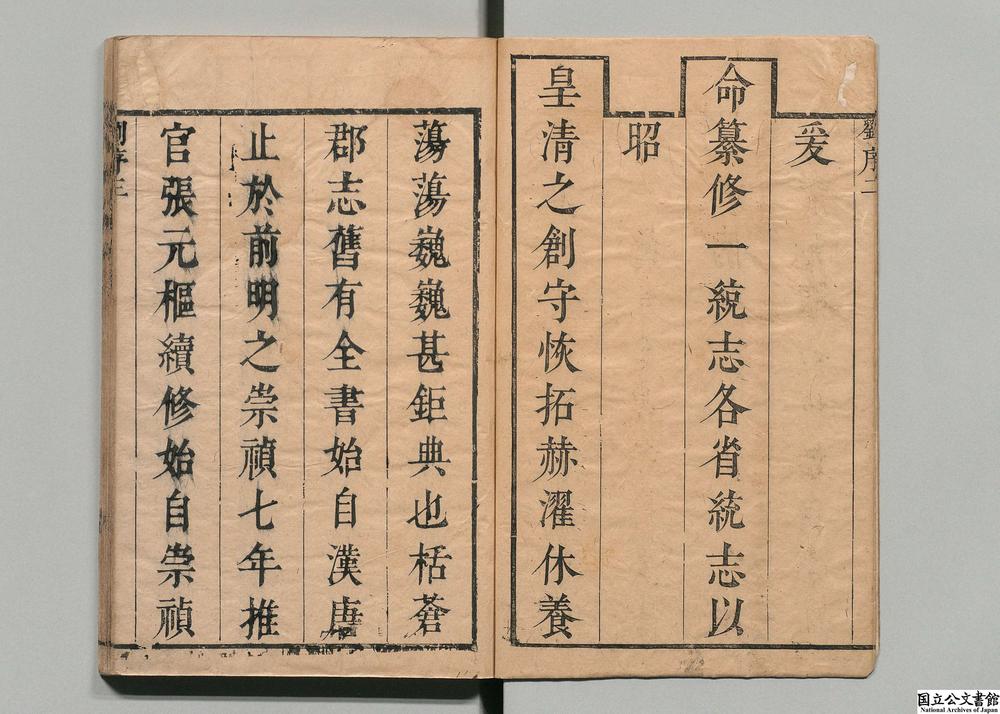 劉序二
爰
命纂修一統志各省統志以
昭
皇清之創守恢拓赫濯休養
蕩蕩巍巍甚鉅典也栝蒼
郡志舊有全書始自漢唐
止於前明之崇禎七年推
官張元樞續修始自崇禎
劉序三
国立公文書館
National Archives of Japan